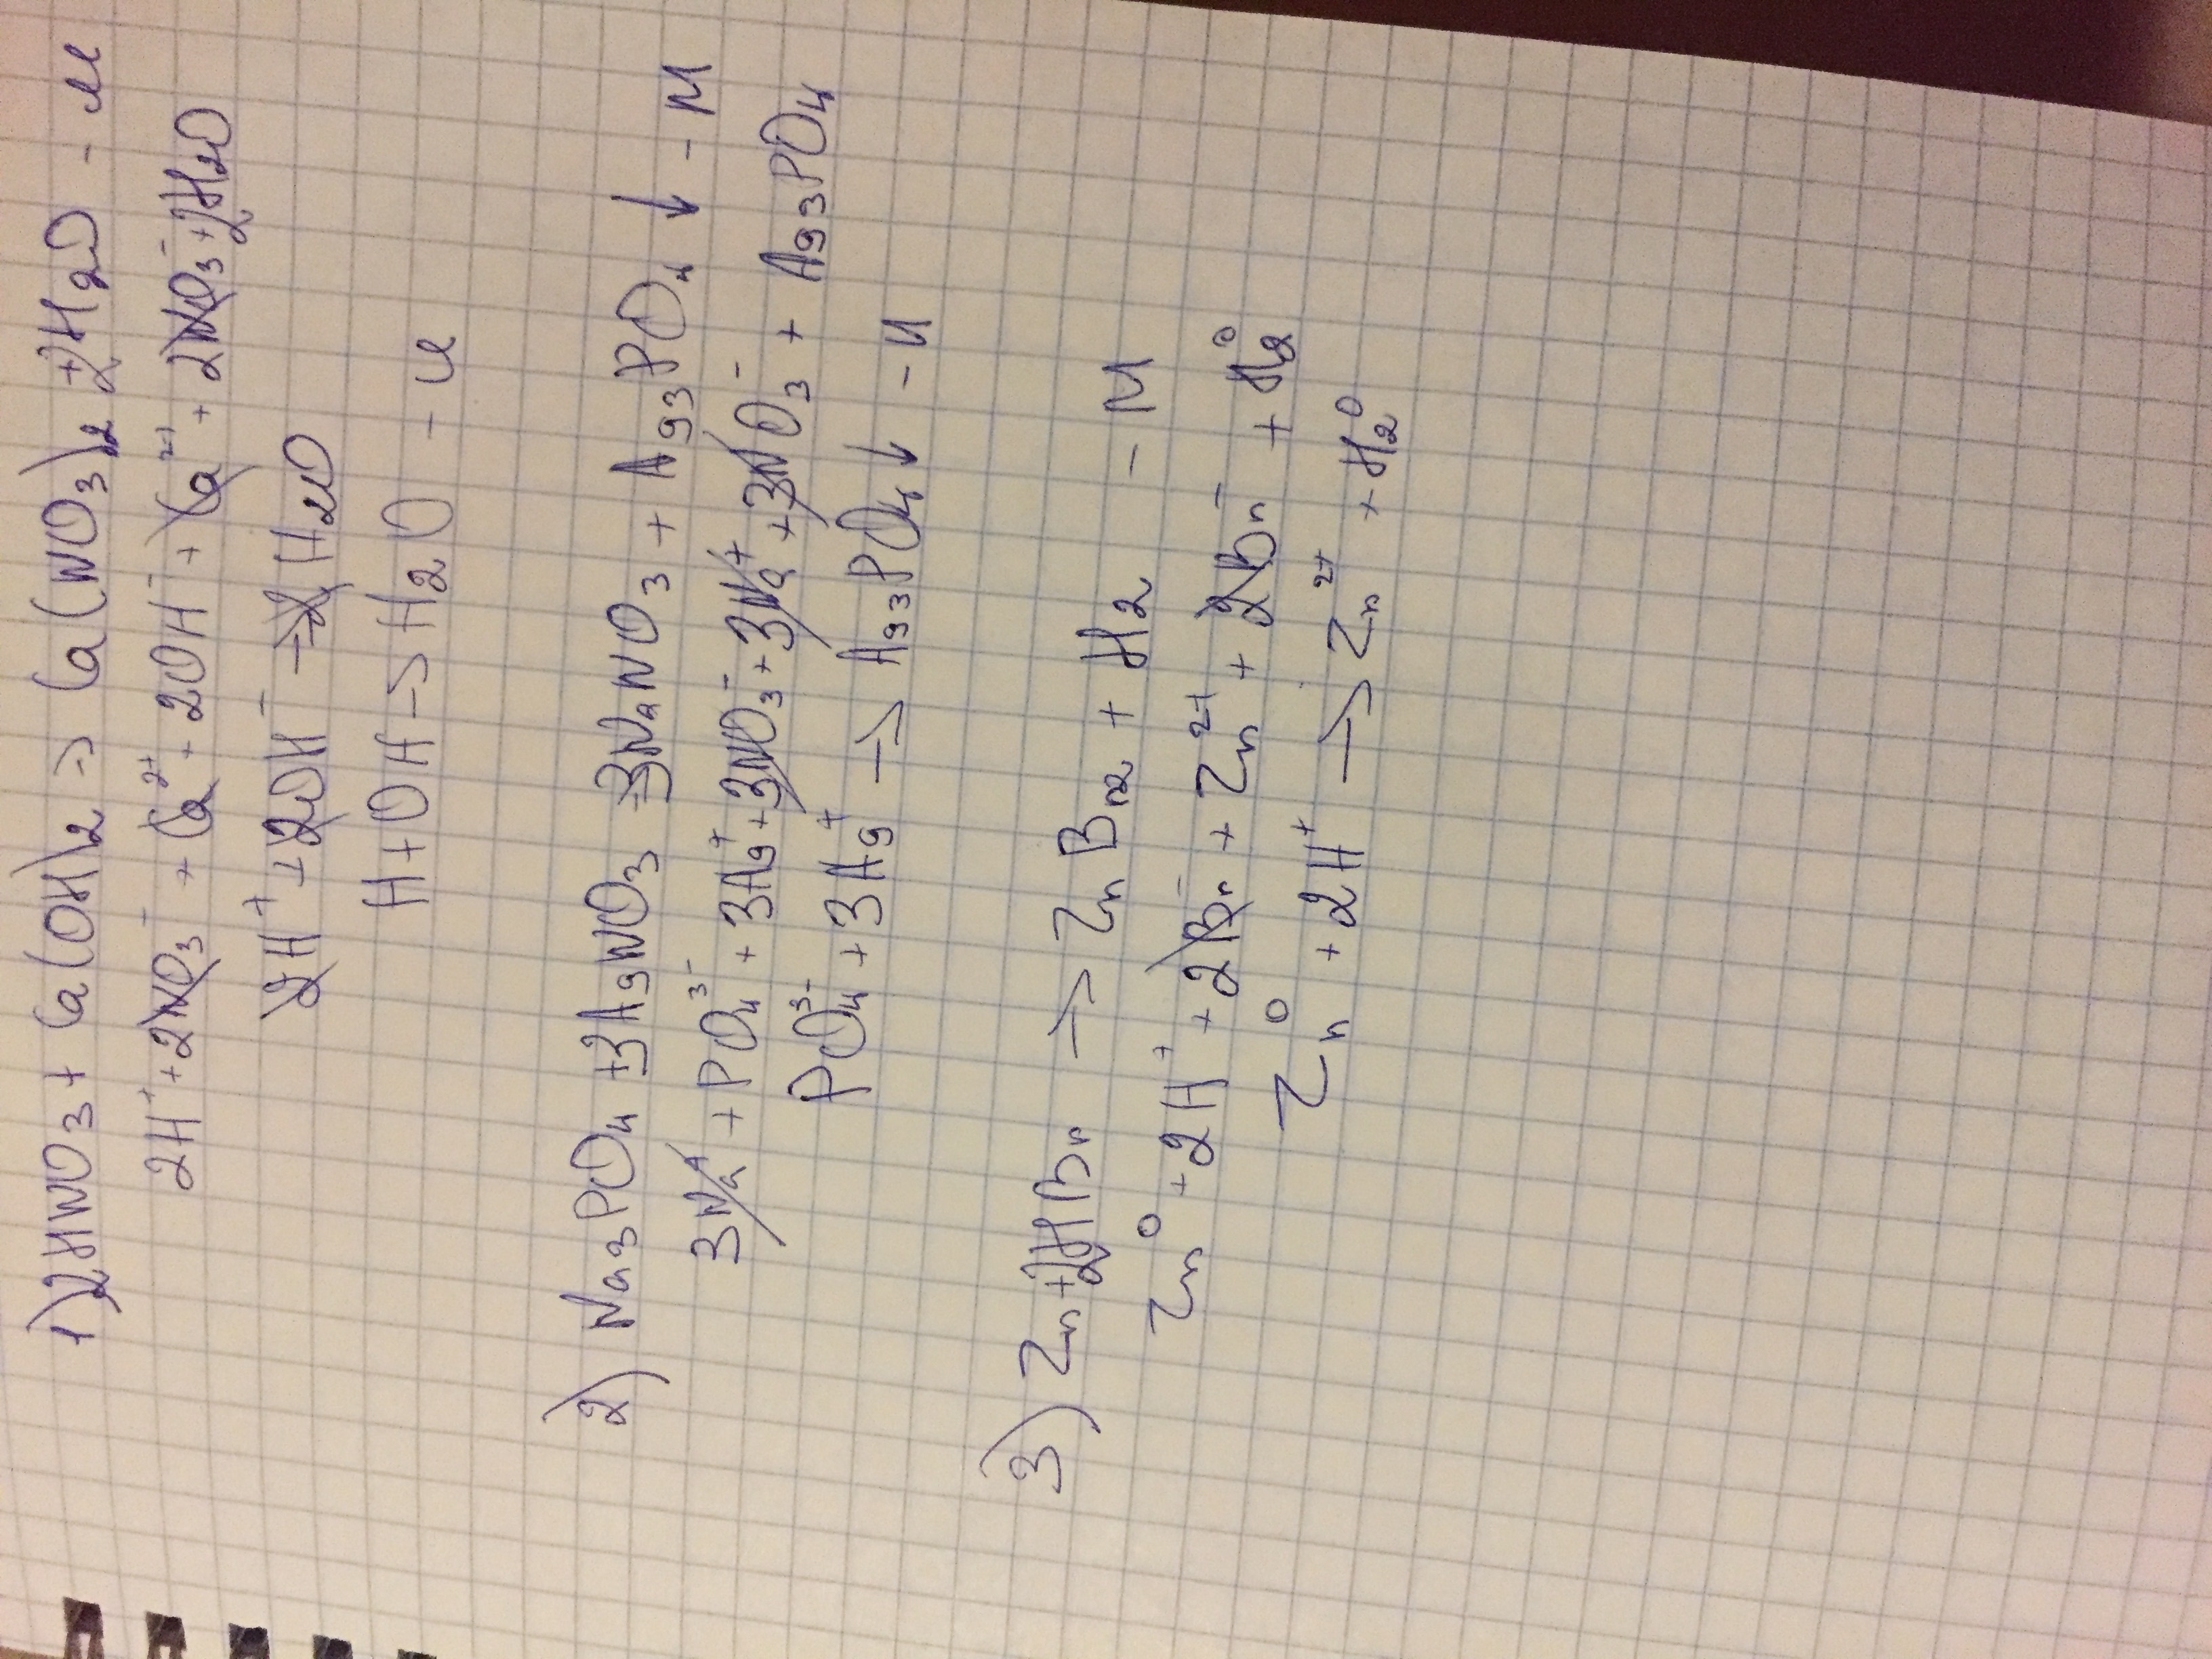 1) 2HNO3 + Ca(OH)2 → Ca(NO3)2 + 2H2O - м
2H⁺ + 2NO3⁻ + Ca²⁺ + 2OH⁻ + Ca²⁺ + 2NO3⁻ + 2H2O
2H⁺ + 2OH⁻ → 2H2O
H + OH → H2O - и
2) Na3PO4 + 3AgNO3 → 3NaNO3 + Ag3PO4 ↓ - М
3Na⁺ + PO4³⁻ + 3Ag⁺ + 3NO3⁻ + 3Na⁺ + 3NO3⁻ + Ag3PO4
PO4³⁻ + 3Ag⁺ → Ag3PO4 ↓ - и
3) Zn + 2HBr → ZnBr2 + H2 - М
Zn⁰ + 2H⁺ + 2Br⁻ + Zn²⁺ + 2Br⁻ + H2⁰
Zn⁰ + 2H⁺ → Zn²⁺ + H2⁰